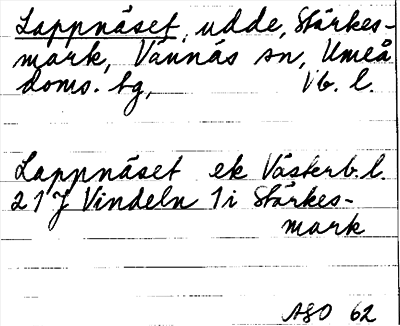 Lappnäset, udde, Stärkes-
mark, Vännäs sn, Umeå
doms. tg, Vb. l.
Lappnäset ek Västerb.l.
21J Vindeln 1i Stärkes-
mark
ASO 62